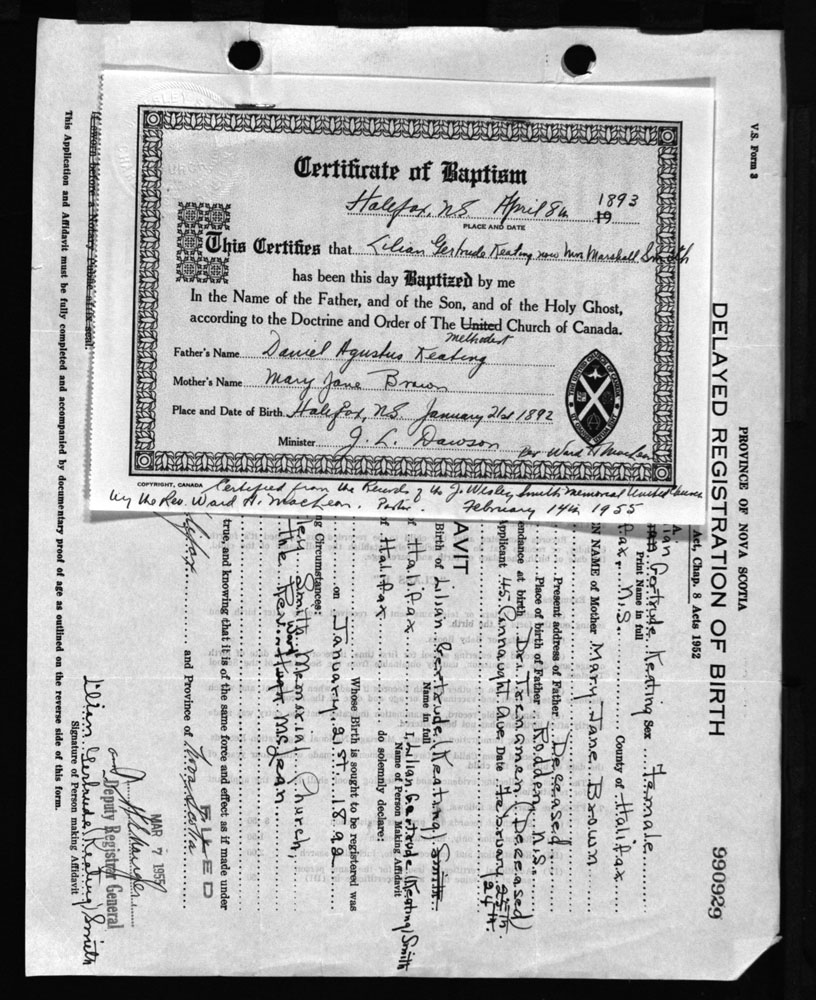 Certificate of Baptism
Halifax, N.S. April 8th 1893
19
PLACE AND DATE
This Certifies that Lilian Gertrude Keating now Mrs Marshall Smith
has been this day Baptized by me
In the Name of the Father, and of the Son, and of the Holy Ghost,
according to the Doctrine and Order of The United Church of Canada.
Methodist
Father's Name Daniel Agustus Keating
Mother's Name Mary Jane Brown
Place and Date of Birth Halifax, N.S. January 21st 1892
Minister J. L. Dawson
per Ward H MacLean
COPYRIGHT, CANADA
Certified from the Records of the J. Wesley Smith Memorial United Church
by the Rev. Ward H. MacLean. Pastor. February 14th 1955
V.S. Form 3
PROVINCE OF NOVA SCOTIA
DELAYED REGISTRATION OF BIRTH
990929
Act, Chap. 8 Acts 1952
Gertrude Keating Sex Female
Print Name in full
fax, N.S. County of Halifax
N NAME of Mother Mary Jane Brown
Present address of Father Deceased
Place of birth of Father Rodden N.S.
endance at birth Dr. Trenamen (Deceased)
applicant 45 Connaught Ave. Date February 25th
24th
AVIT
Birth of Lilian Gertrude (Keating) Smith
Name in full
of Halifax I, Lilian Gertrude (Keating) Smith
Name of Person Making Affidavit
f Halifax do solemnly declare:
Whose Birth is sought to be registered was
on January 21st 1892
ng Circumstances:
ley Smith Memorial Church,
the Rev. Hugh McLean
Ward
true, and knowing that it is of the same force and effect as if made under
lifax and Province of Nova Scotia
FILED
MAR 7 1955
Deputy Registrar General
Lilian Gertrude (Keating) Smith
Signature of Person making Affidavit
This Application and Affidavit must be fully completed and accompanied by documentary proof of age as outlined on the reverse side of this form.
If sworn before a Notary Public affix seal.